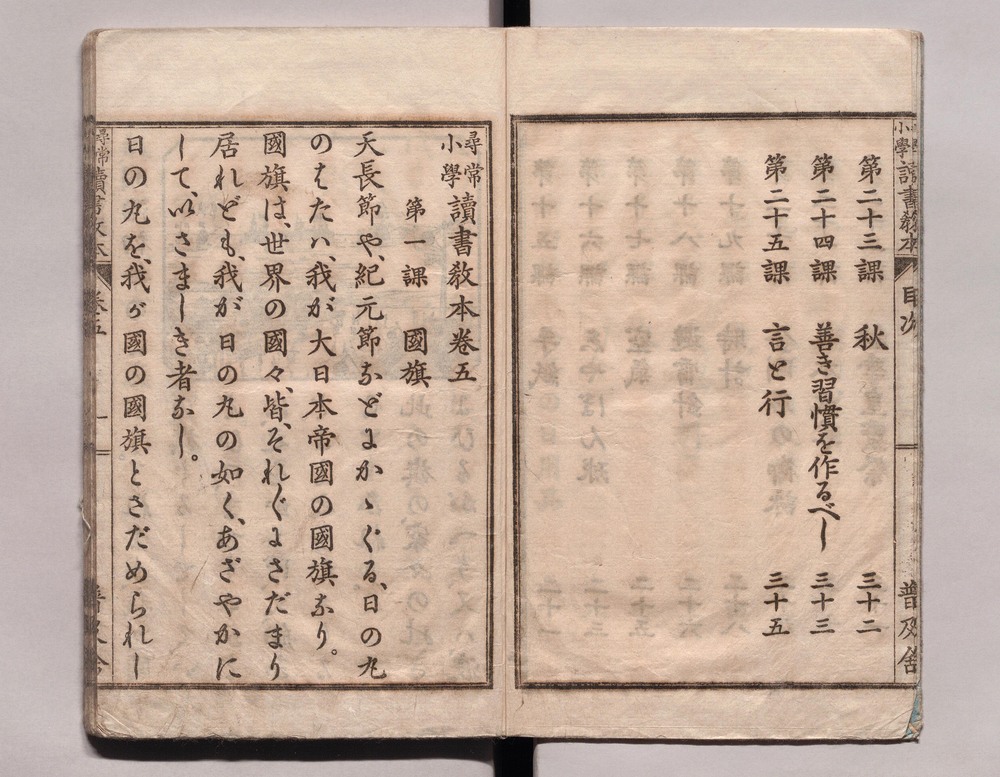 小學讀書敎本 目次 普及舍
第二十三課 秋 三十二
第二十四課 善き習慣を作るべし 三十三
第二十五課 言と行 三十五
尋常小學讀書敎本卷五
第一課 國旗
天長節や、紀元節などにかゝぐる、日の丸
のはたハ、我が大日本帝國の國旗なり。
國旗は、世界の國々、皆、それ〲にさだまり
居れども、我が日の丸の如く、あざやかに
して、いさましき者なし。
日の丸を、我が國の國旗とさだめられし
尋常 讀書敎本 卷五 一 普及舍